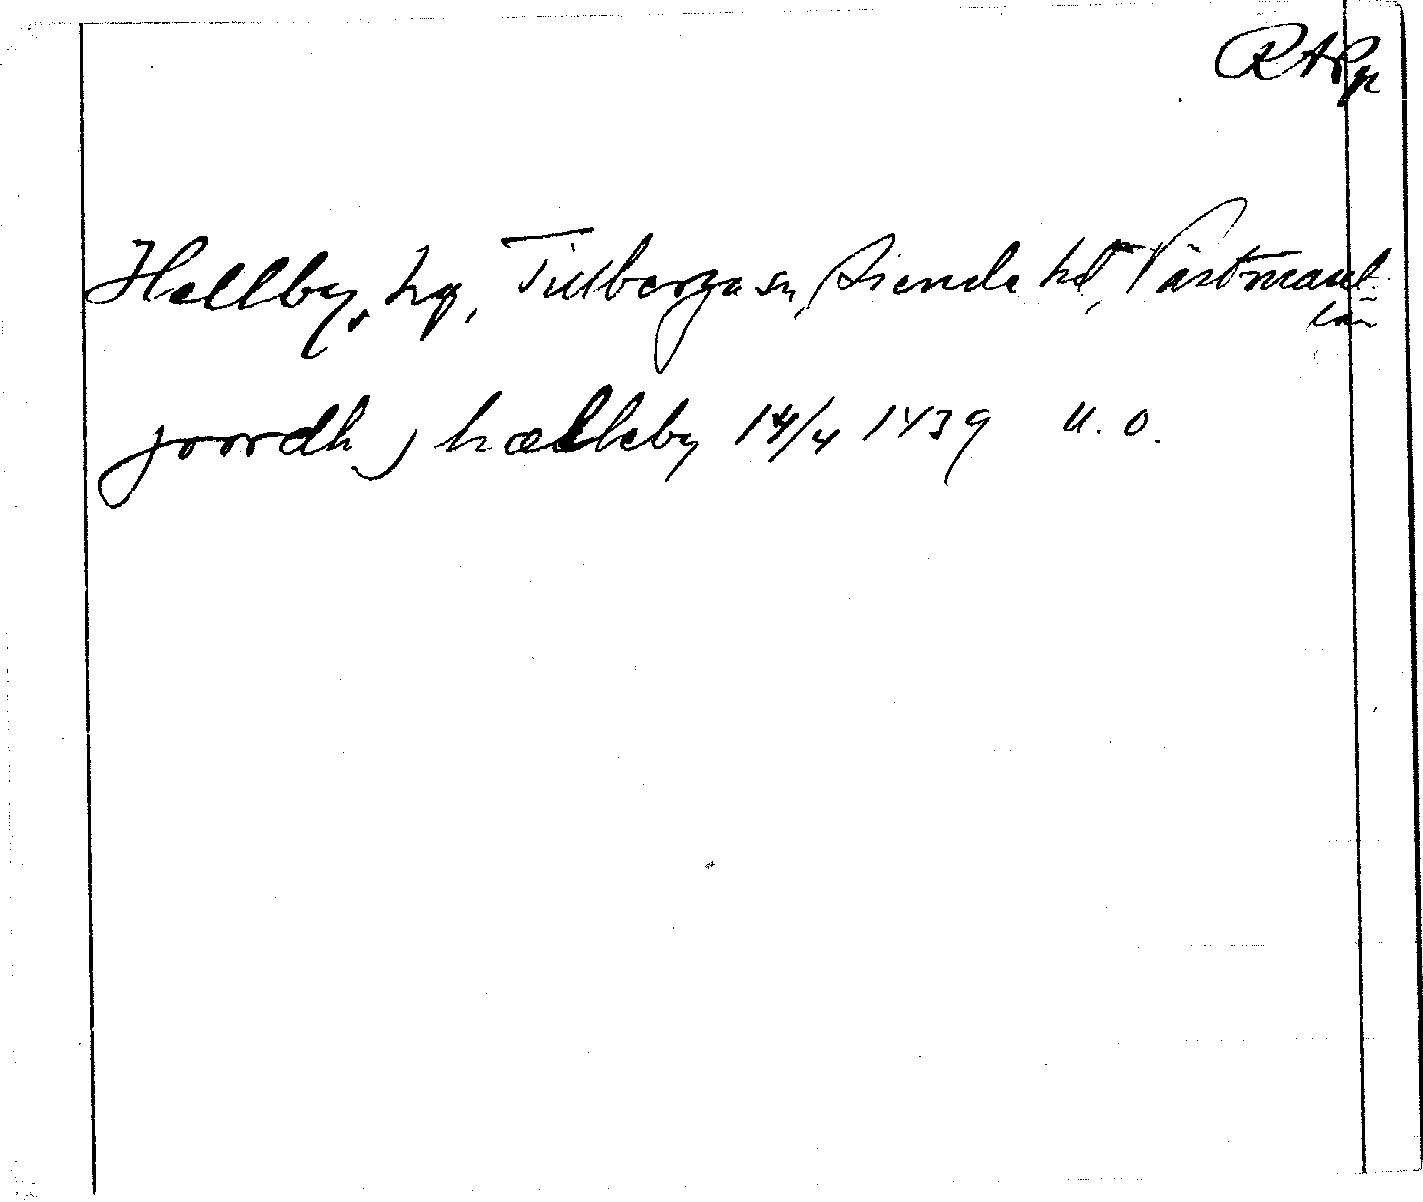 RAPp
Hallby, hg, Tillberga sn, Siende hd, Västmanl.
län
joordh j hælleby 14/4 1439 u. o.